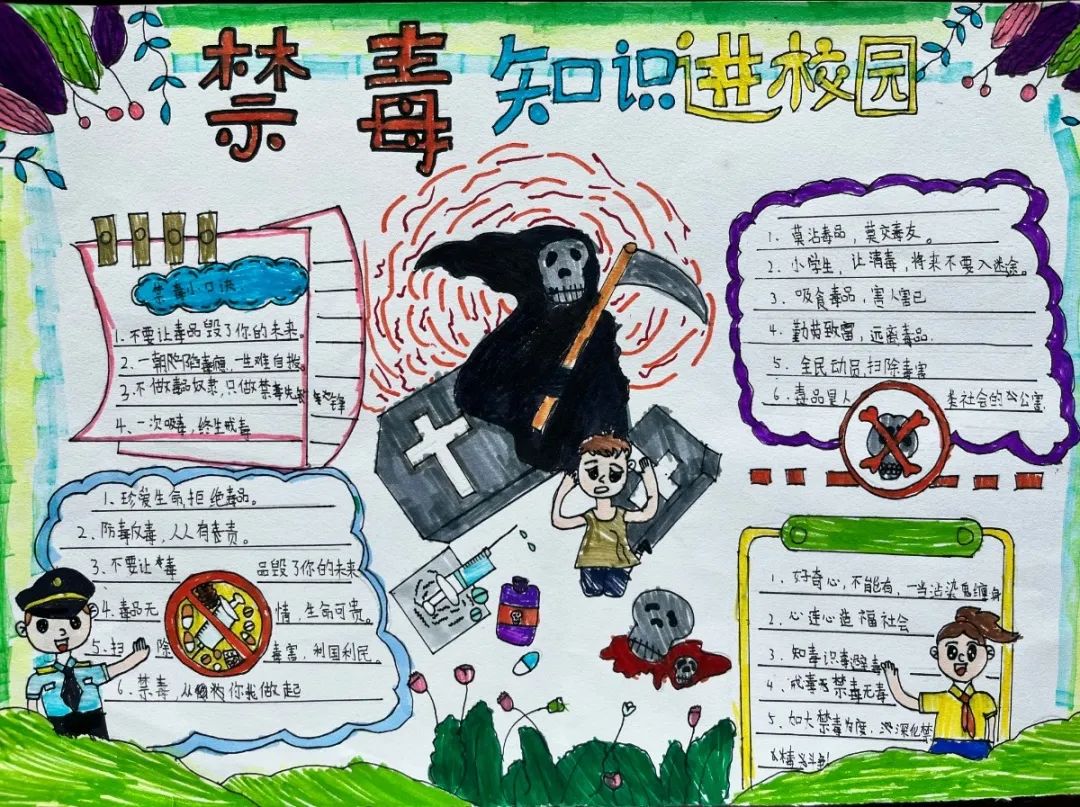 禁毒知识进校园
禁毒小口决
1.不要让毒品毁了你的未来。
2.一朝陷毒瘾,一生难自拔。
3.不做毒品奴隶,只做禁毒先锋
4.一次吸毒,终生戒毒
1.珍爱生命,拒绝毒品。
2.防毒反毒,人人有责。
3.不要让毒品毁了你的未来
4.毒品无情,生命可贵。
5.扫除毒害,利国利民。
6.禁毒,从你我做起
1.莫沾毒品,莫交毒友。
2.小学生,让消毒,将来不要入迷途。
3.吸食毒品,害人害己
4.勤劳致富,远离毒品.
5.全民动员,扫除毒害
6.毒品是人类社会的公害
1.好奇心,不能有,一当沾染鬼缠身
2.心连心造福社会
3.知毒识毒避毒
4.戒毒 禁毒无毒
5.加大禁毒力度,深化禁